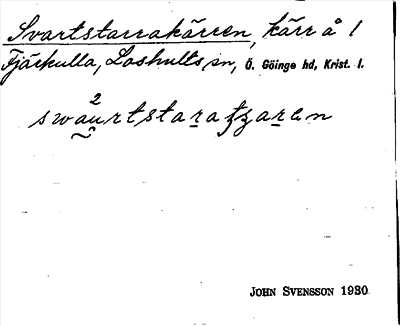 Svartstarrakärren, kärr å 1
Fjäckulla, Loshults sn, Ö. Göinge hd, Krist. l.
2
swaurtstaratʒaren
JOHN SVENSSON 1930